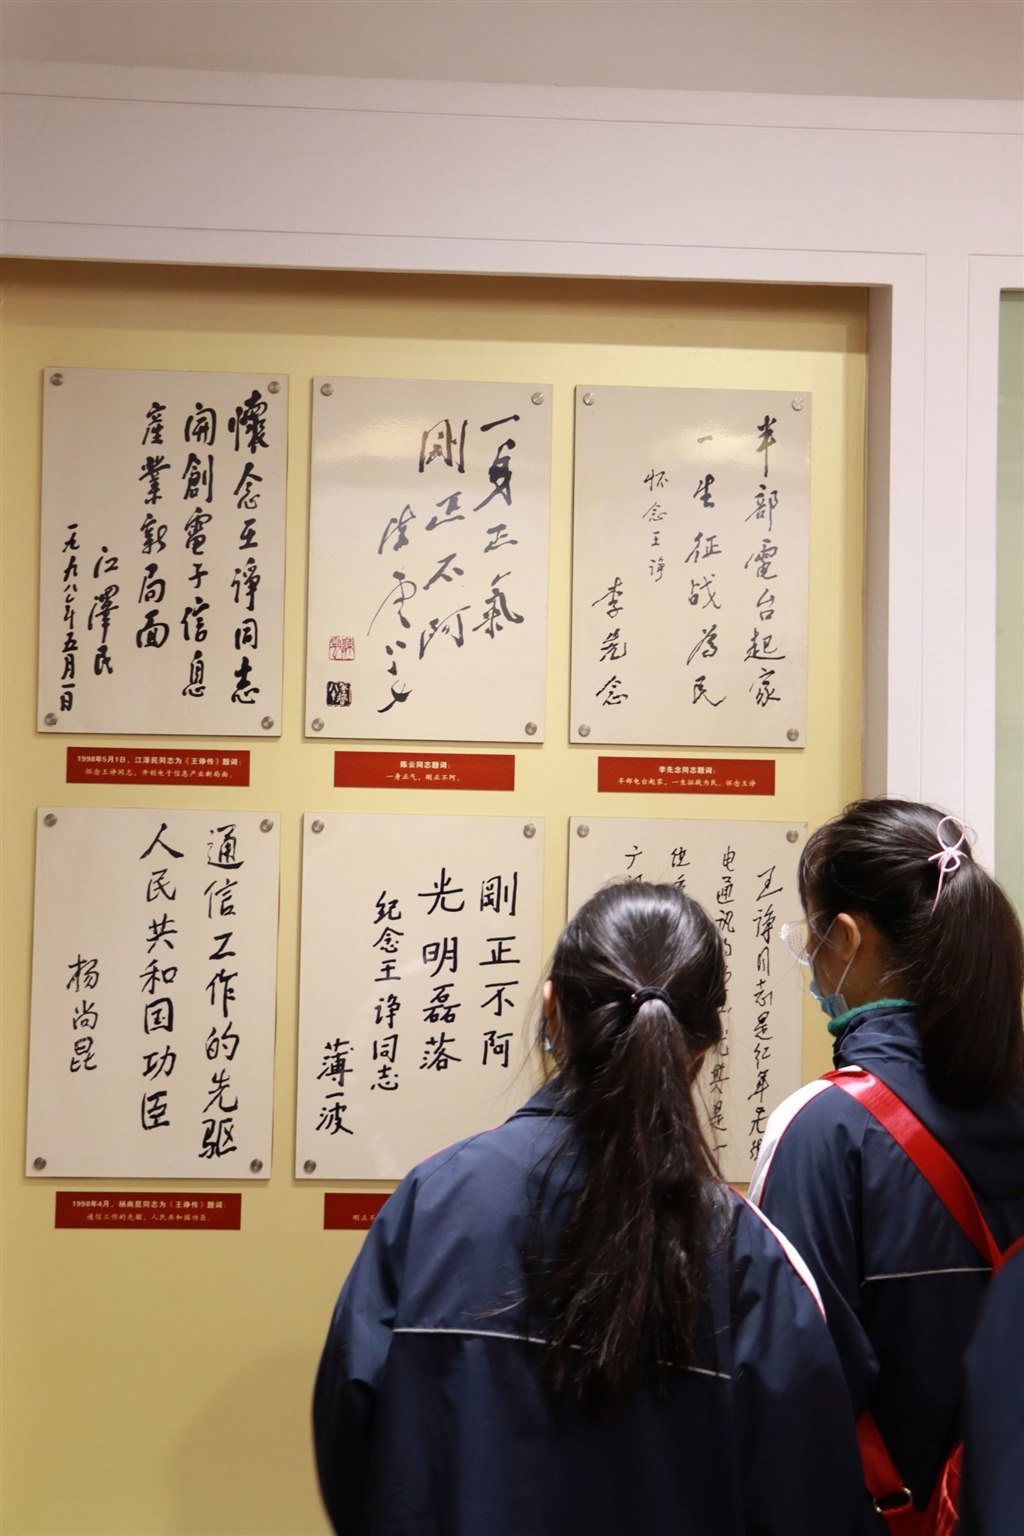 懷念王諍同志
開創電子信息
産業新局面
江澤民
一九九八年五月一日
1998年5月1日，江泽民同志为《王诤传》题词：
怀念王诤同志，开创电子信息产业新局面。
一身正氣
剛正不阿
陈云同志题词：
一身正气，刚正不阿。
半部電台起家
一生征战为民
怀念王诤
李先念
李先念同志题词：
半部电台起家，一生征战为民。怀念王诤
通信工作的先驱
人民共和国功臣
杨尚昆
1998年4月，杨尚昆同志为《王诤传》题词：
通信工作的先驱，人民共和国功臣。
剛正不阿
光明磊落
纪念王诤同志
薄一波
刚正不
王诤同志是红军无线
电通讯的
尤其是一